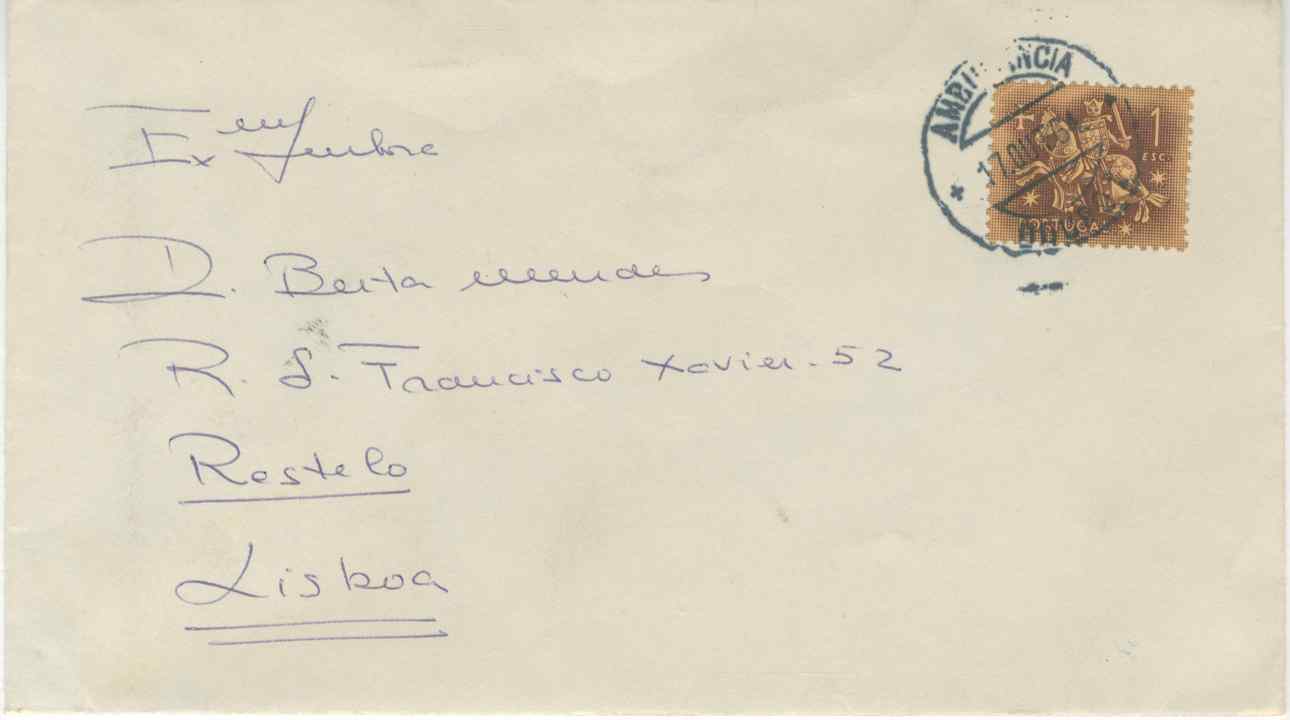 Exma Senhora
D. Berta Mendes
R. S. Francisco Xavier - 52
Restelo
Lisboa
1
ESC.
PORTUGAL